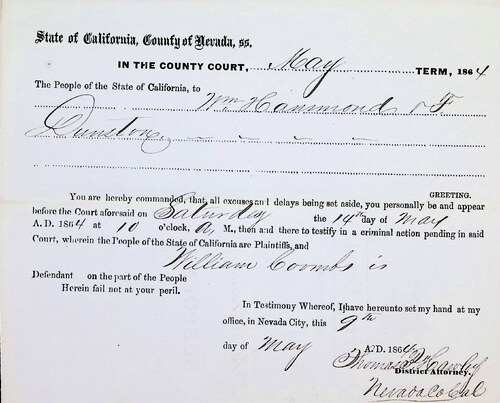 State of California, County of Nevada, ss.
IN THE COUNTY COURT, May TERM, 1864
The People of the State of California, to
Wm Hammond & F
Dunston
GREETING.
You are hereby commanded, that, all excuses and delays being set aside, you personally be and appear
before the Court aforesaid on Saturday the 14th day of May
A. D. 1864 at 10 o'clock, A. M., then and there to testify in a criminal action pending in said
Court, wherein the People of the State of California are Plaintiffs, and
William Coombs is
Defendant on the part of the People
Herein fail not at your peril.
In Testimony Whereof, I have hereunto set my hand at my
office, in Nevada City, this 9th
day of May A. D. 1864
Thomas P Hawley
District Attorney.
Nevada Co Cal